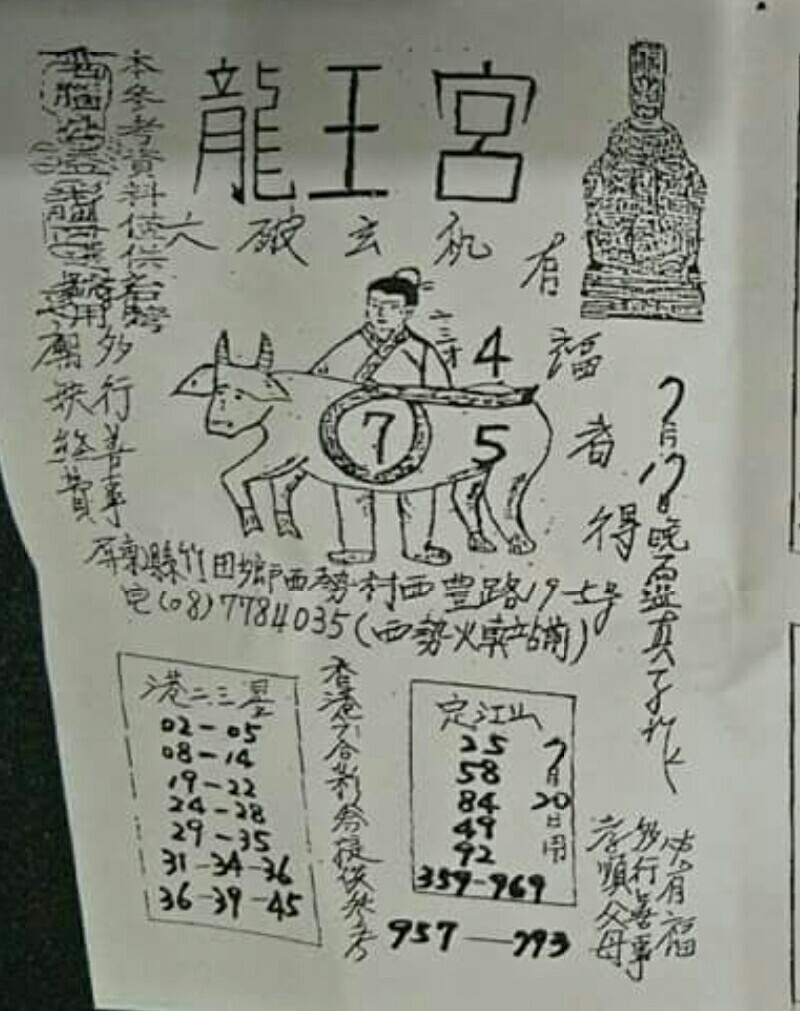 龍王宮
六破玄机
有福者得
本參考資料僅供台灣
多行善事
廟
二三才
4
7
5
7月17日晚
屏東縣竹田鄉西勢村西豐路19-7号
電(08)7784035(西勢火車站前)
港二三星
02-05
08-14
19-22
24-28
29-35
31-34-36
36-39-45
香港六合彩祭提供參考
定江山
25
58
84
49
92
359-969
7月20日用
957—793
必有福
多行善事
孝順父母